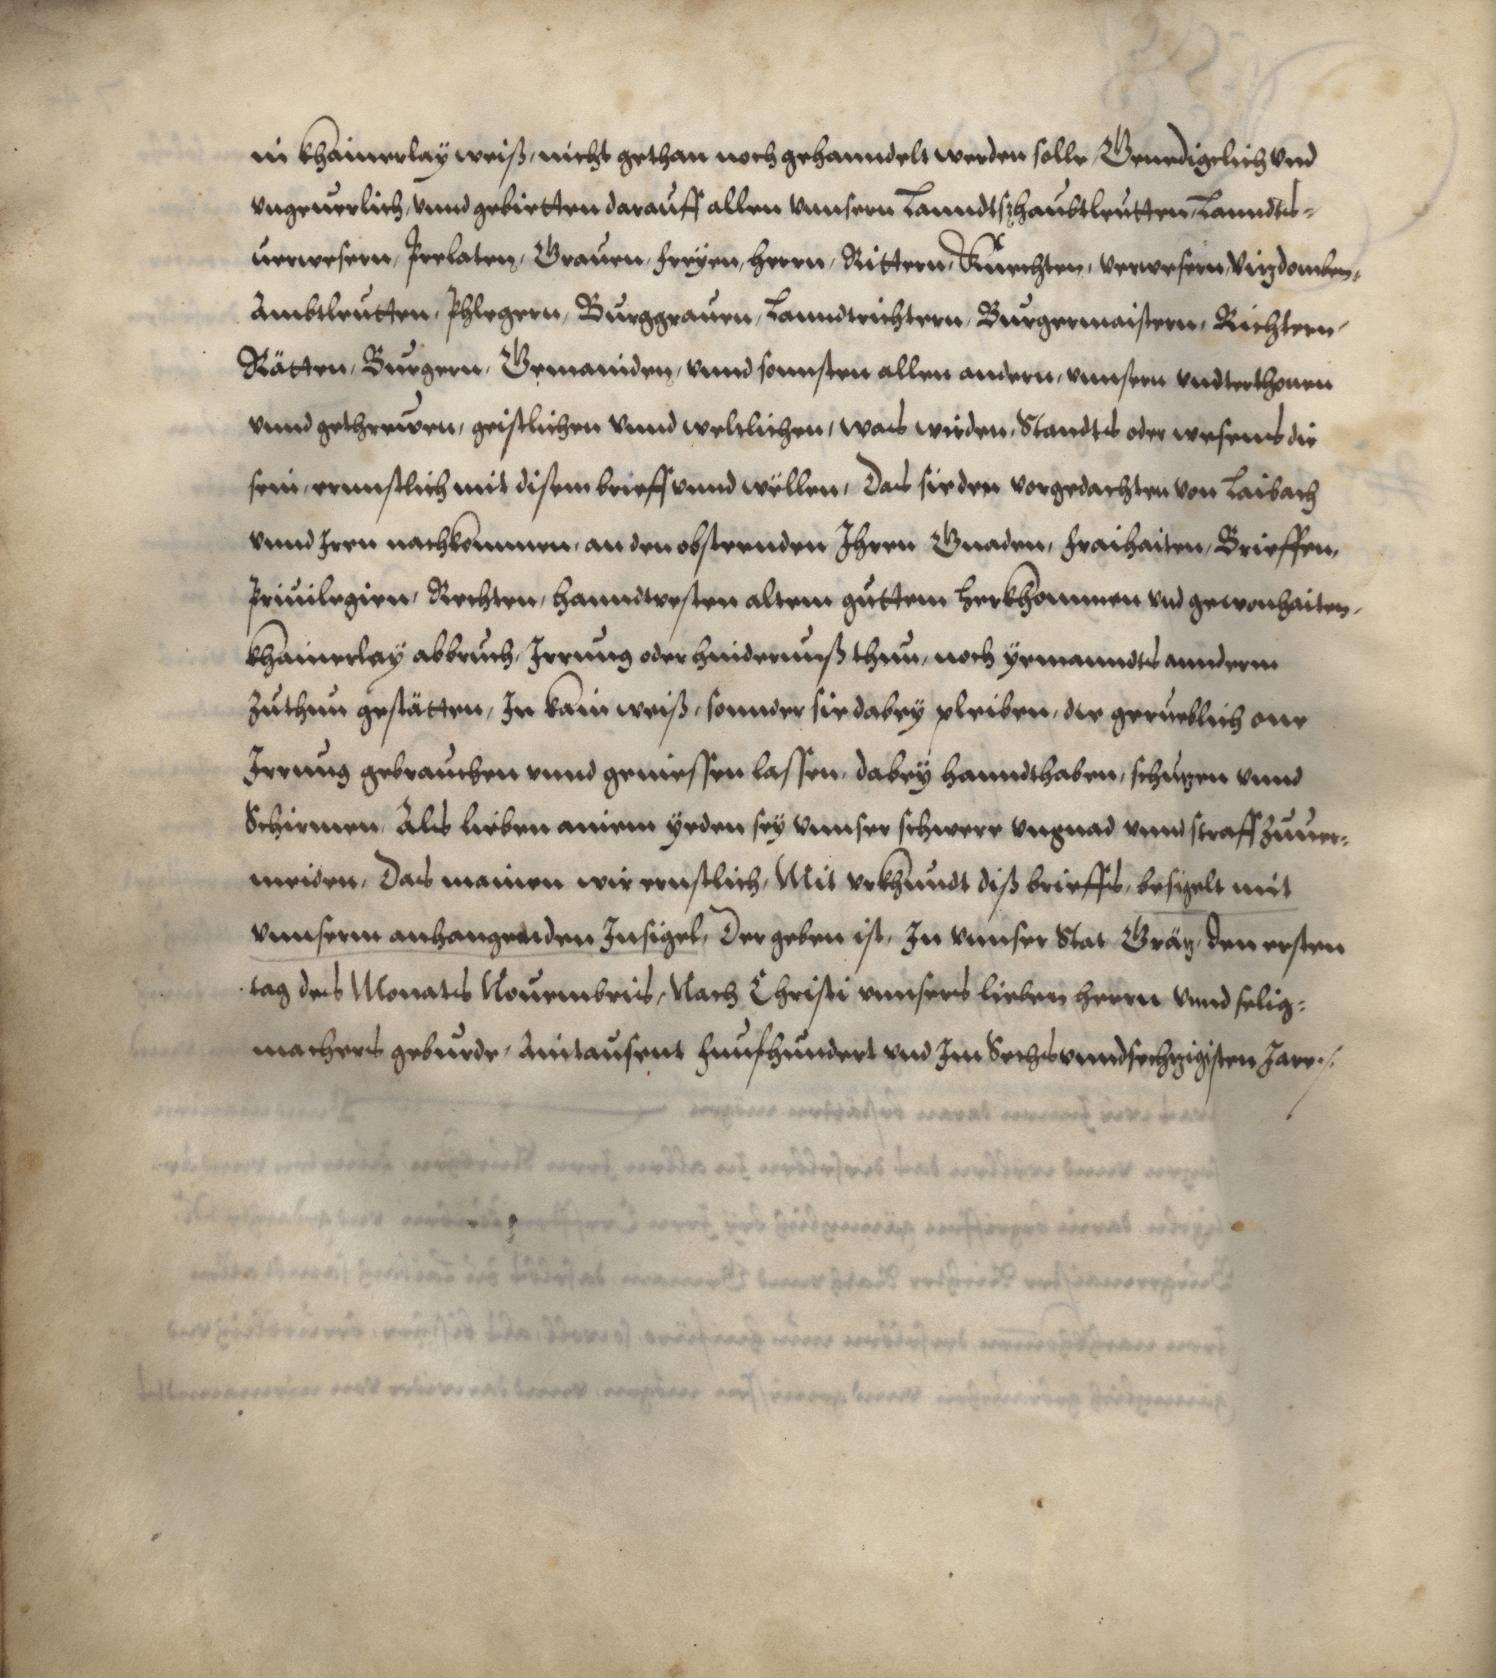 in khainerlay weiß, nichts gethan noch gehanndelt werden solle, Genediglich vnd
vngeuerlich, vnnd gebietten darauff allen vnnsern Lanndtßhaubtleutten, Lanndts-
uerwesern, Prelaten, Grauen, freyen, herrn, Rittern, Knechten, verwesern, Vizdomben,
Ambtleutten, Phlegern, Burggrauen, Lanndtrichtern, Burgermaistern, Richtern,
Rätten, Burgern, Gemainden, vnnd sonnsten allen andern, vnnsern vndterthonen
vnnd gethrewen, geistlichen vnnd weltlichen, was wirden, Standts oder wesens die
sein, ernnstlich mit disem brieff vnnd wellen, Das sie den vorgedachten von Laibach
vnnd Iren nachkommen, an den obsteenden Ihren Gnaden, fraihaiten, Brieffen,
Priuilegien, Rechten, hanndtvesten altem guttem herkhommen vnd gewonhaiten,
khainerlay abbruch, Irrung oder hindernuß thun, noch yemanndts annderm
zuthun gestätten, In kain weiß, sonnder sie dabey pleiben, die gerueblich one
Irrung gebrauchen vnnd geniessen lassen, dabey hanndthaben, schuzen vnnd
Schirmen, Als lieben ainem yeden sey vnnser schwere vngnad vnnd straff zuuer-
meiden, Das mainen wir ernstlich, Mit vrkhundt diß brieffs, besigelt mit
vnnserm anhangenden Insigel, Der geben ist, In vnnser Stat Gräz, den ersten
tag des Monats Nouembris, Nach Christi vnnsers lieben herrn vnnd selig-
machers geburde, Aintausent funfhundert vnd Im Sechsvnndsechzigisten Jare./.